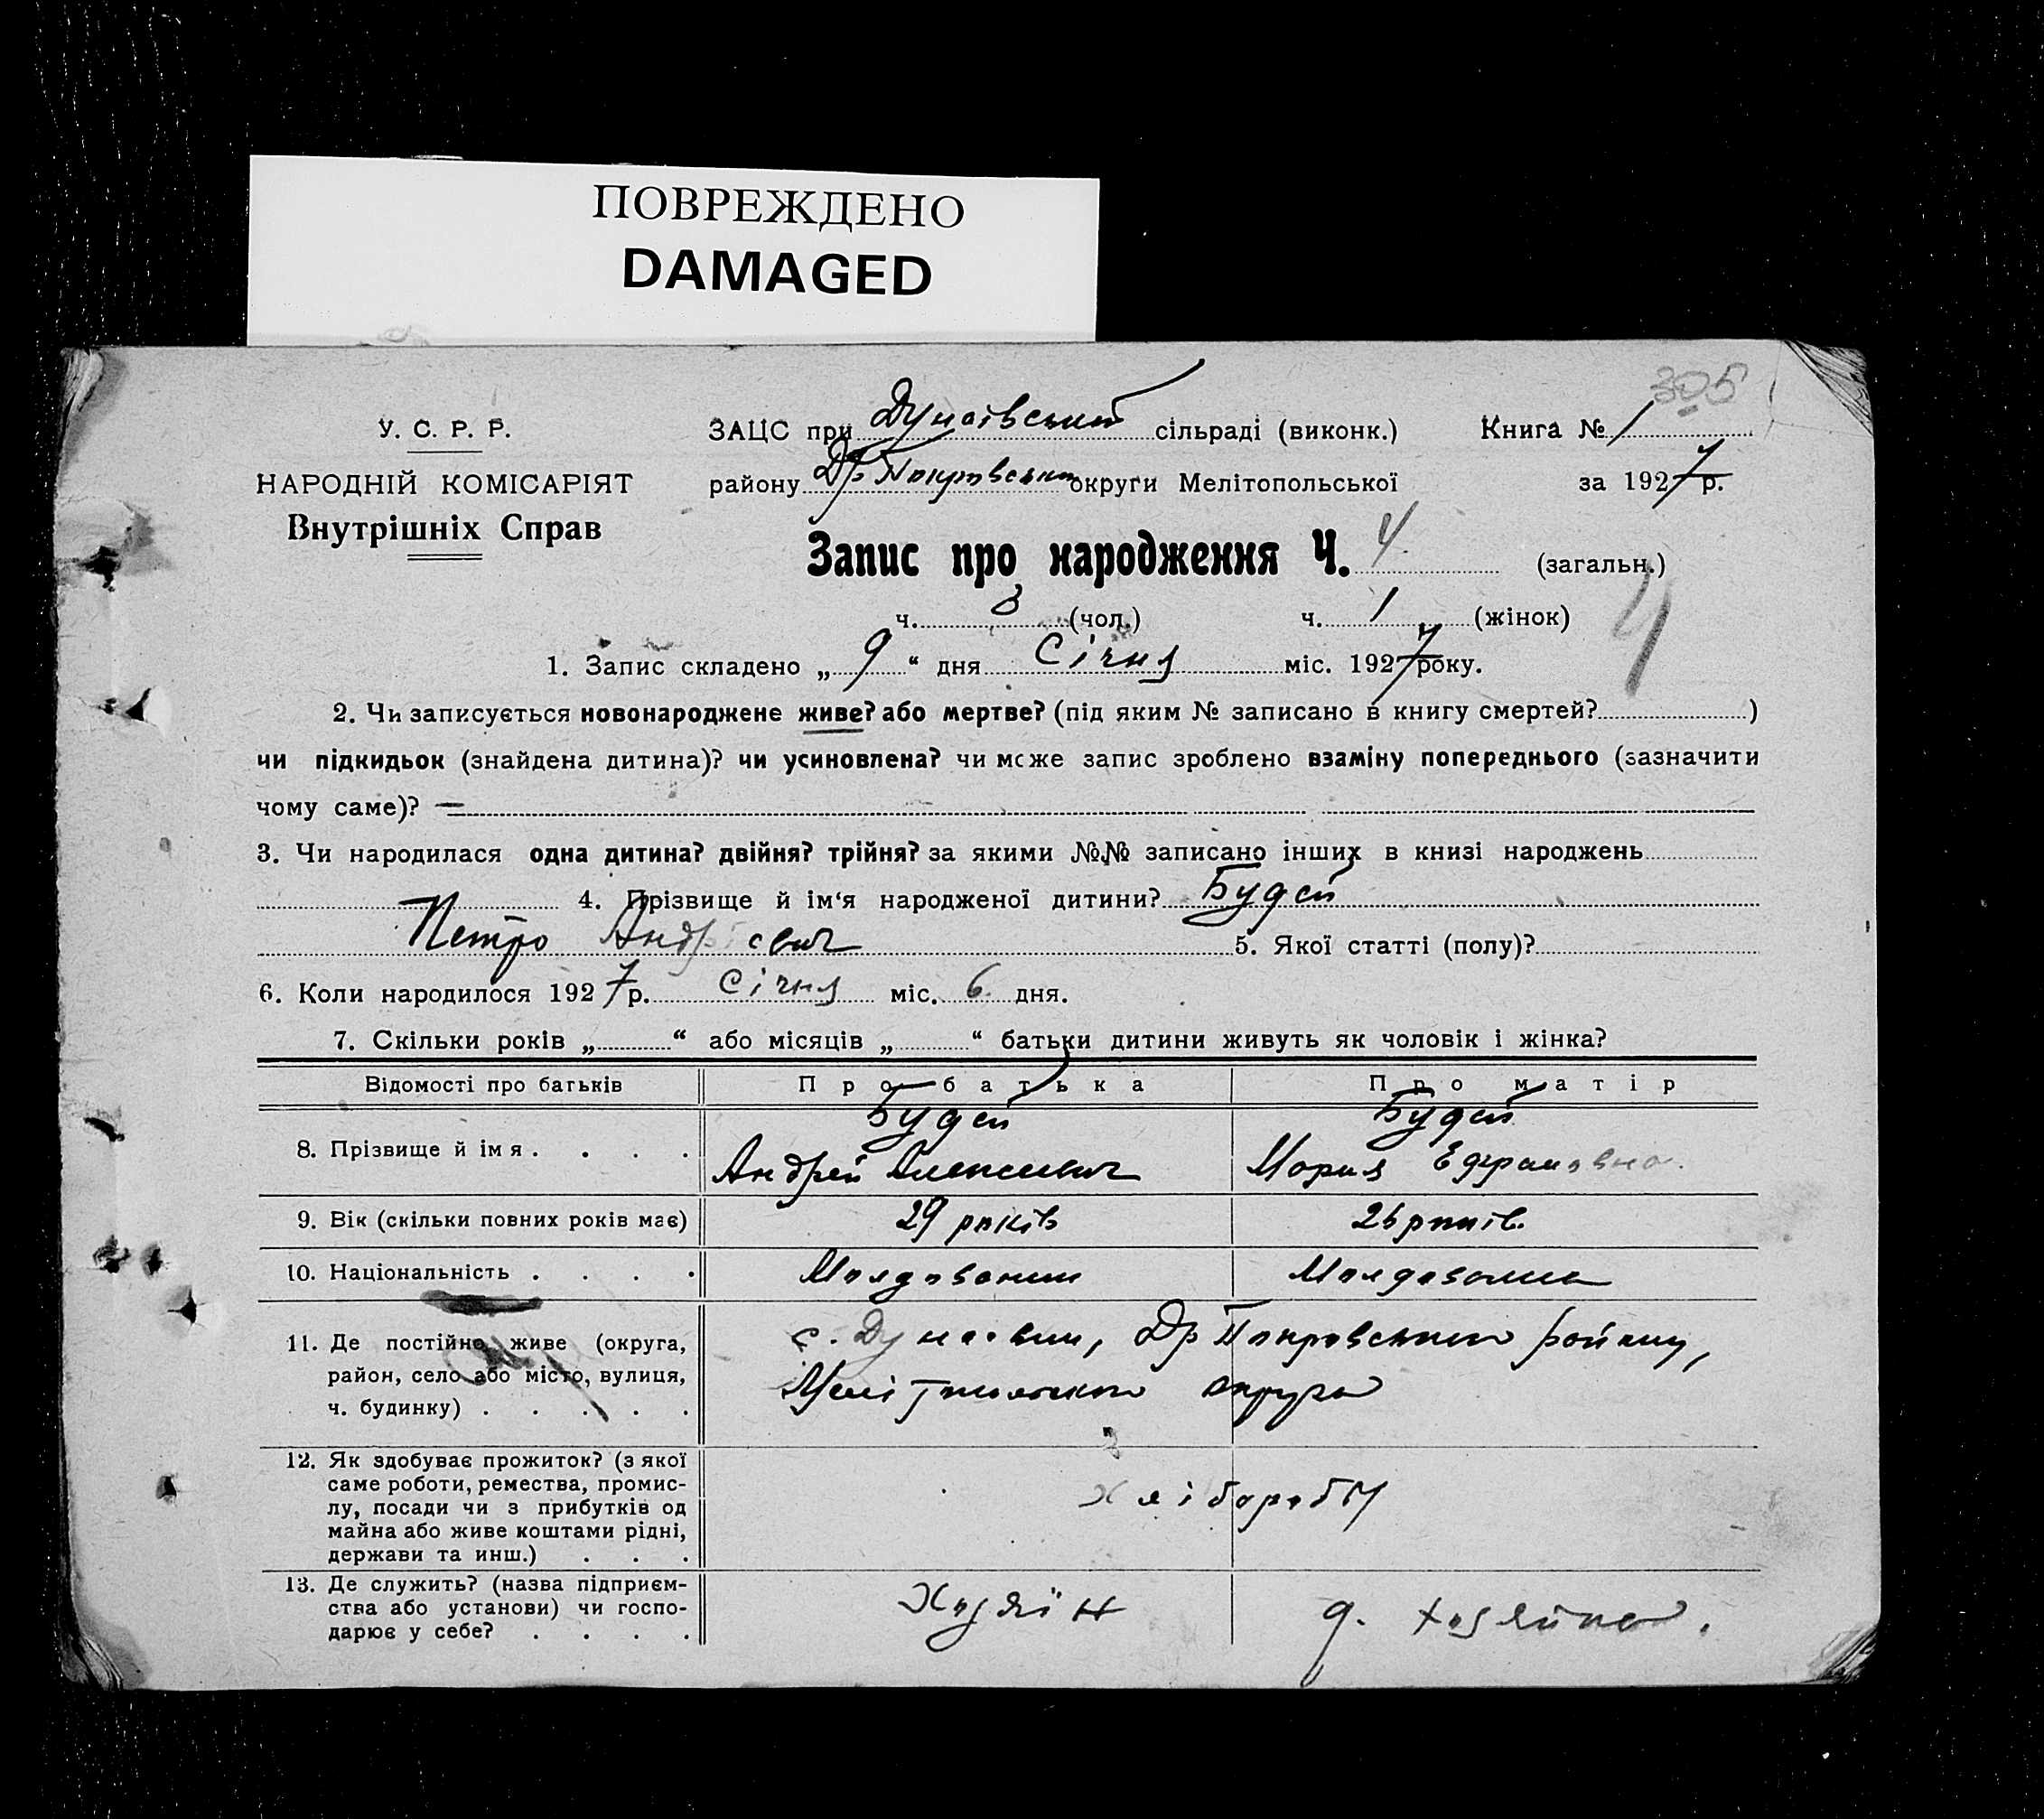 ПОВРЕЖДЕНО
DAMAGED
305
У. С. Р. Р.
НАРОДНІЙ КОМІСАРІЯТ
Внутрішніх Справ
ЗАЦС при Дунаївській сільраді (виконк.) Книга № 1
району Др Покровським округи Мелітопольської за 1927 р.
Запис про народження Ч. 4 (загальн.)
4
ч. 3 (чол.) ч. 1 (жінок)
1. Запис складено „ 9 “ дня Січня міс. 1927 року.
2. Чи записується новонароджене живе? або мертве? (під яким № записано в книгу смертей? )
чи підкидьок (знайдена дитина)? чи усиновлена? чи може запис зроблено взаміну попереднього (зазначити
чому саме)? —
3. Чи народилася одна дитина? двійня? трійня? за якими №№ записано інших в книзі народжень
4. Прізвище й ім‘я народженої дитини? Будей
Петро Андрієвич 5. Якої статті (полу)?
6. Коли народилося 1927 р. Січня міс. 6 дня.
7. Скільки років „ “ або місяців „ “ батьки дитини живуть як чоловік і жінка?
Відомості про батьків Про батька Про матір
8. Прізвище й імя . . . . Будей Будей
Андрей Алексеевич Мария Ефраимовна.
9. Вік (скільки повних років має) 29 років 26 років.
10. Національність . . . . Молдованин Молдованка
11. Де постійно живе (округа,
район, село або місто, вулиця,
ч. будинку) . . . . .
с. Дунаевки, Др Покровського району,
Мелітопольскои округи
12. Як здобуває прожиток? (з якої
саме роботи, ремества, промис-
лу, посади чи з прибутків од
майна або живе коштами рідні,
держави та инш.) . . .
Хліборобы
13. Де служить? (назва підприєм-
ства або установи) чи госпо-
дарює у себе? . . . .
Хозяїн д. хозяйка.